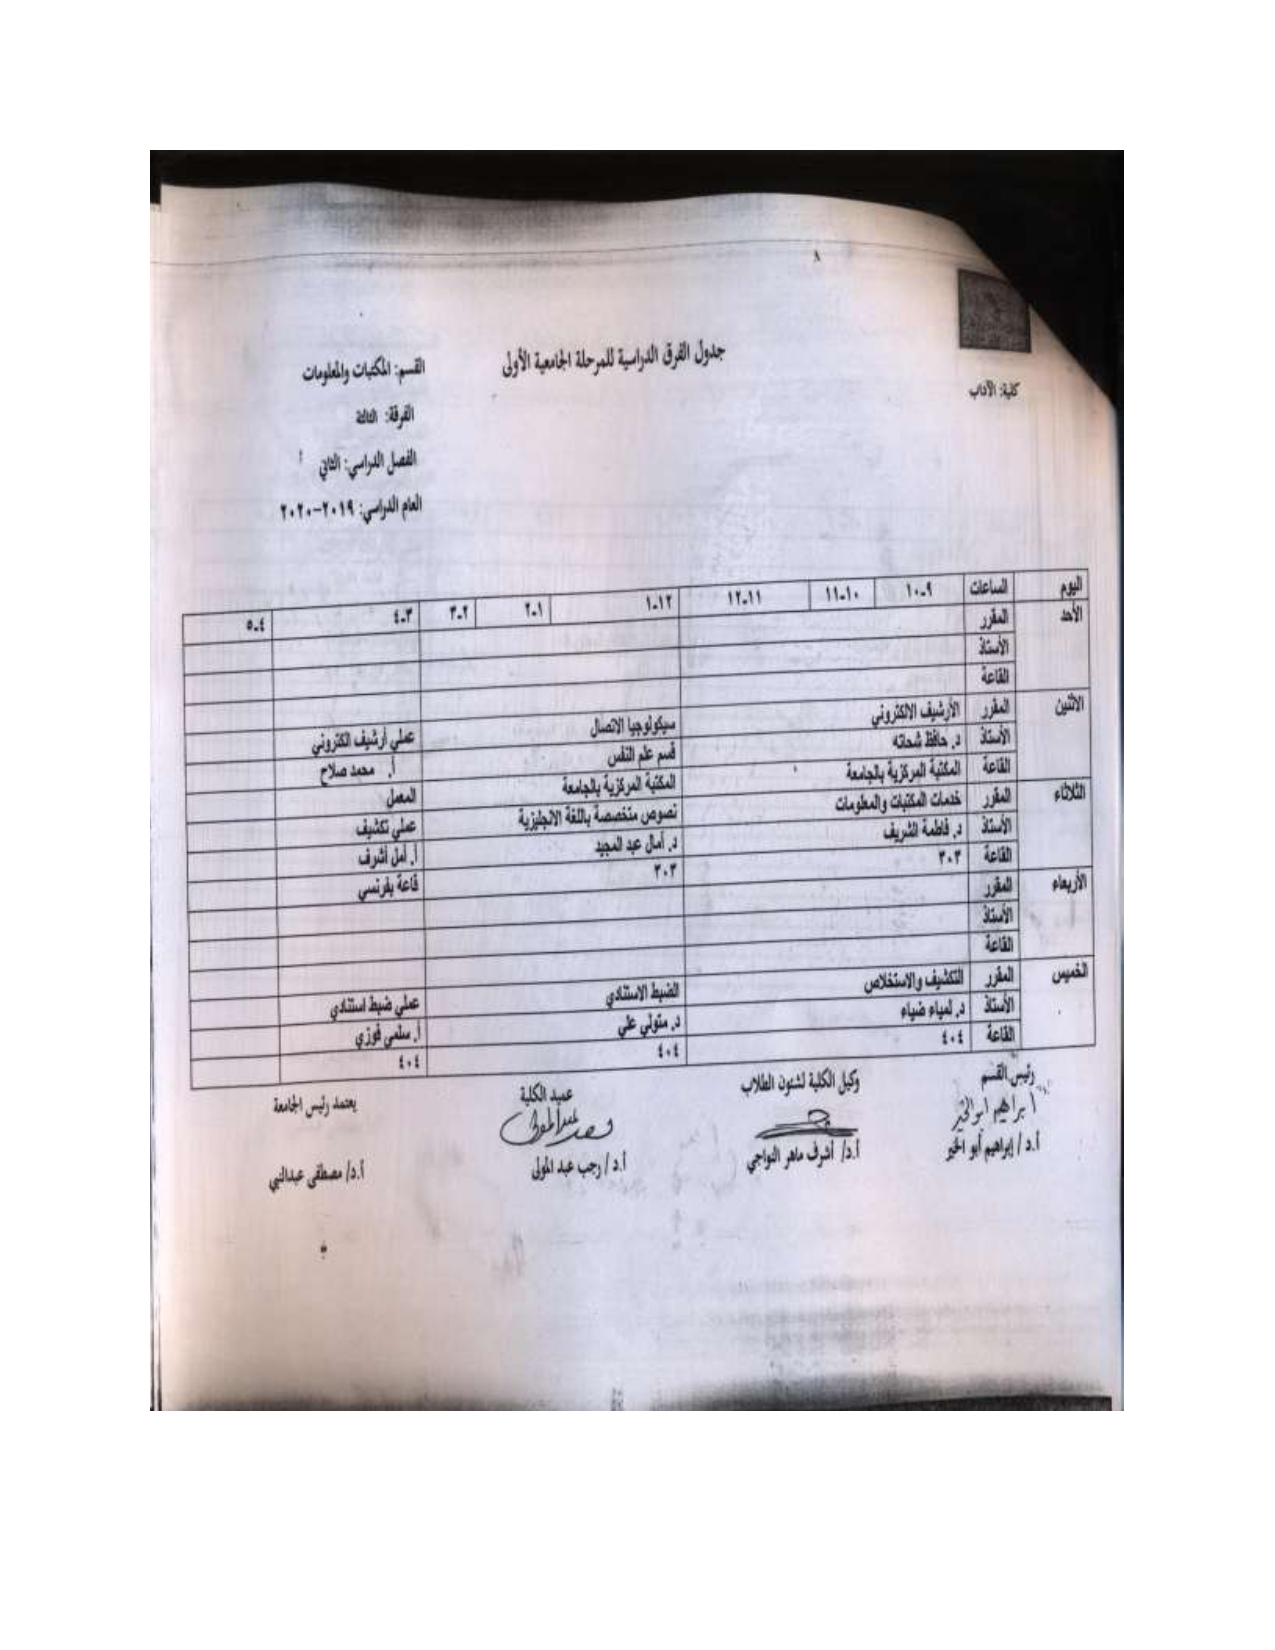 ٨
كلية: الآداب
جدول الفرق الدراسية للمرحلة الجامعية الأولى
القسم: المكتبات والمعلومات
الفرقة: الثالثة
الفصل الدراسي: الثاني
العام الدراسي: ٢٠١٩-٢٠٢٠
اليوم الساعات ٩-١٠ ١٠-١١ ١١-١٢ ١٢-١ ١-٢ ٢-٣ ٣-٤ ٤-٥
الأحد المقرر
الأستاذ
القاعة
الاثنين المقرر الأرشيف الالكتروني سيكولوجيا الاتصال عملي أرشيف الكتروني
الأستاذ د. حافظ شحاته قسم علم النفس أ. محمد صلاح
القاعة المكتبة المركزية بالجامعة المكتبة المركزية بالجامعة المعمل
الثلاثاء المقرر خدمات المكتبات والمعلومات نصوص متخصصة باللغة الانجليزية عملي تكشيف
الأستاذ د. فاطمة الشريف د. أمال عبد المجيد أ. أمل أشرف
القاعة ٣٠٣ ٣٠٣ قاعة بفرنسي
الأربعاء المقرر
الأستاذ
القاعة
الخميس المقرر التكشيف والاستخلاص الضبط الاستنادي عملي ضبط استنادي
الأستاذ د. لمياء ضياء د. متولي علي أ. سلمى فوزي
القاعة ٤٠٤ ٤٠٤ ٤٠٤
رئيس القسم وكيل الكلية لشئون الطلاب عميد الكلية يعتمد رئيس الجامعة
ابراهيم ابوالخير
أ.د / إبراهيم أبو الخير أ.د/ أشرف ماهر النواجي أ.د / رجب عبد المولى أ.د/ مصطفى عبدالنبي